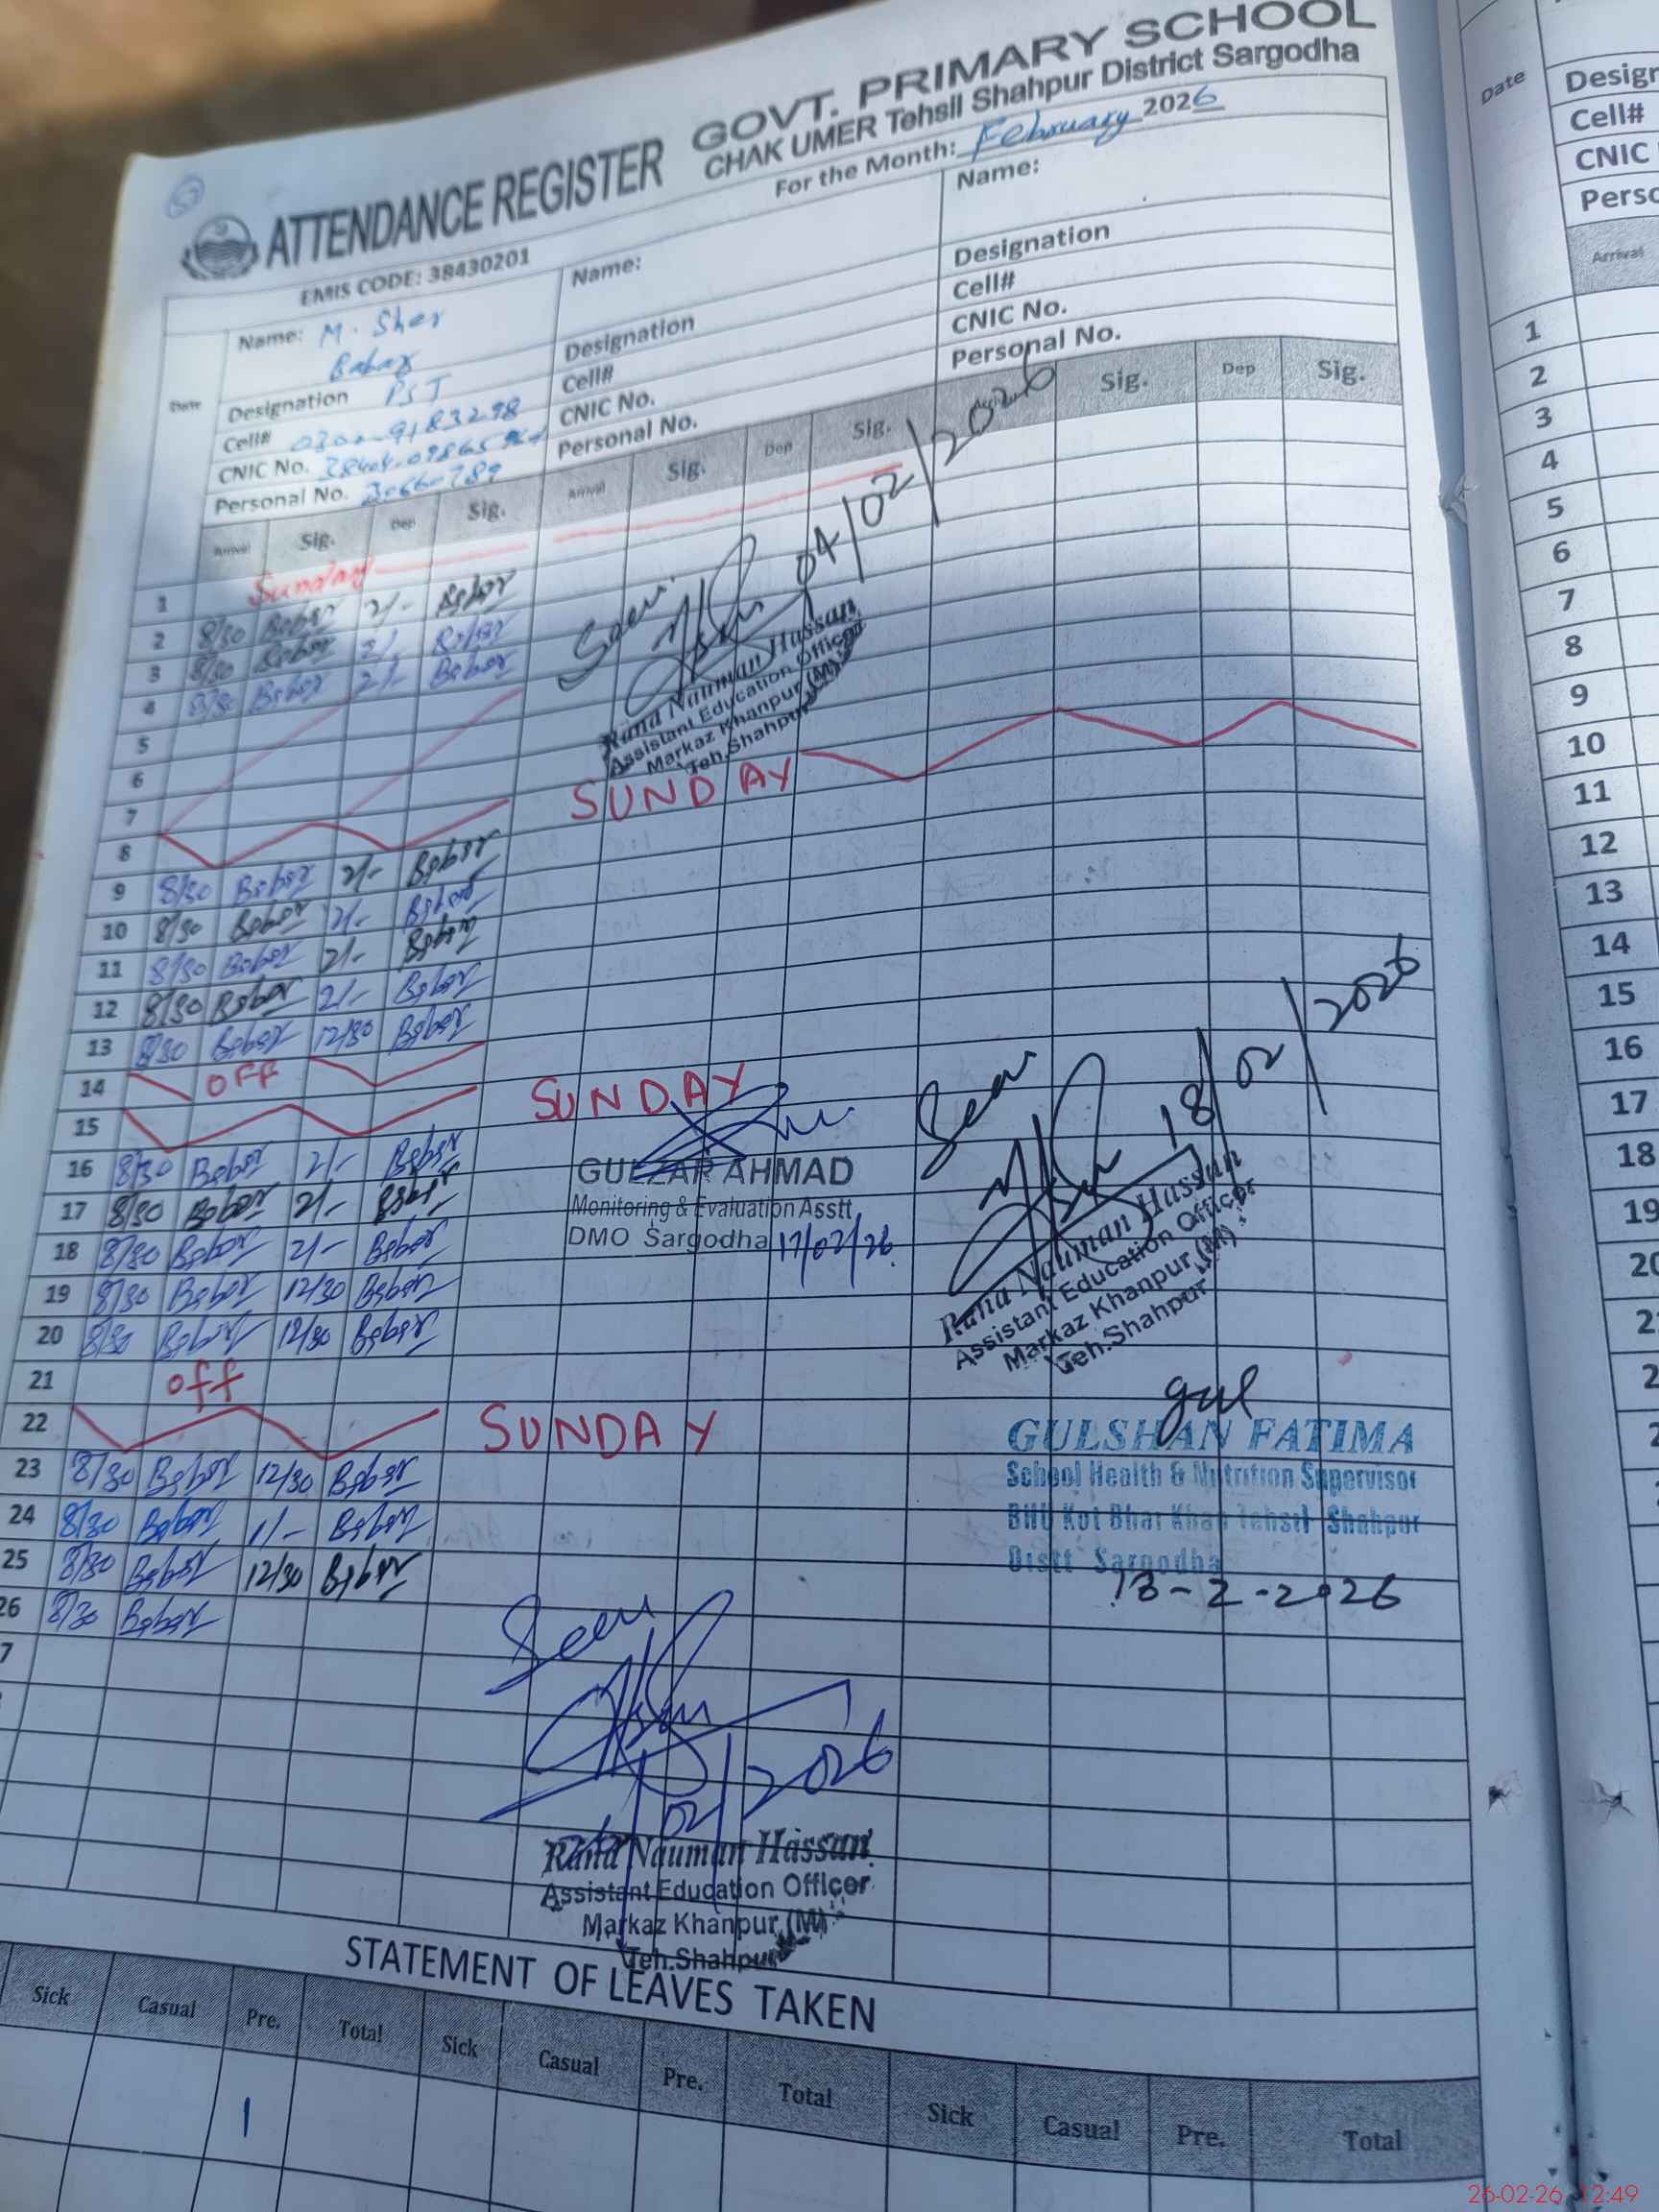 GOVT. PRIMARY SCHOOL
ATTENDANCE REGISTER CHAK UMER Tehsil Shahpur District Sargodha
EMIS CODE: 38430201 For the Month: February 2026
Date Name: M. Sher Babar Name: Name:
Designation PST Designation Designation
Cell# Cell# Cell#
CNIC No. CNIC No. CNIC No.
Personal No. Personal No. Personal No.
Arrival Sig. Dep Sig. Arrival Sig. Dep Sig. Sig. Dep Sig.
1 Sunday
2 8/30 Babar 2/- Babar
3 8/30 Babar 2/- Babar
4 8/30 Babar 2/- Babar
Seen 04/02/2026
Rana Nauman Hassan
Assistant Education Officer
Markaz Khanpur (M)
Teh.Shahpur
5
6
7
8 SUNDAY
9 8/30 Babar 2/- Babar
10 8/30 Babar 2/- Babar
11 8/30 Babar 2/- Babar
12 8/30 Babar 2/- Babar
13 8/30 Babar 12/30 Babar
14 OFF
15 SUNDAY
16 8/30 Babar 2/- Babar
17 8/30 Babar 2/- Babar
18 8/30 Babar 2/- Babar
19 8/30 Babar 12/30 Babar
20 8/30 Babar 12/30 Babar
GULZAR AHMAD
Monitoring & Evaluation Asstt
DMO Sargodha 17/02/26
Seen 18/02/2026
Rana Nauman Hassan
Assistant Education Officer
Markaz Khanpur (M)
Teh.Shahpur
21 off
22 SUNDAY
23 8/30 Babar 12/30 Babar
24 8/30 Babar 1/- Babar
25 8/30 Babar 12/30 Babar
26 8/30 Babar
7
gul
GULSHAN FATIMA
School Health & Nutrition Supervisor
BHU Kot Bhai Khan Tehsil Shahpur
Distt Sargodha
13-2-2026
Seen
02/2026
Rana Nauman Hassan
Assistant Education Officer
Markaz Khanpur (M)
Teh.Shahpur
STATEMENT OF LEAVES TAKEN
Sick Casual Pre. Total Sick Casual Pre. Total Sick Casual Pre. Total
1
Date
Cell#
CNIC
Arrival
1
2
3
4
5
6
7
8
9
10
11
12
13
14
15
16
17
18
19
26-02-26 12:49